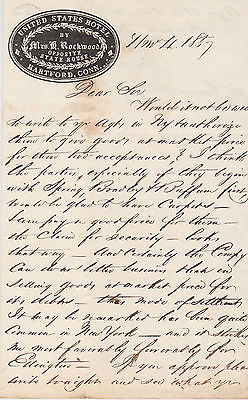 UNITED STATES HOTEL
BY
Mrs. H. Rockwood
OPPOSITE
STATE HOUSE
HARTFORD, CONN.
1857
Dear Sir
Would it not be well
to write to yr Agts in NY & authorize
them to give goods at market price
for their two acceptances? I think
the parties, especially if they begin
with Spring & Son by & Puffum first
would be glad to have Carpets —
even pay a good price for them —
the Claim for Security — looks
that way — And certainly the Compy
can do no better business than in
selling goods at market price for
its debts — This mode of settlement
it may be remarked has been quite
common in New York — and it strikes
me most favorably
If you approve, then
write tonight and see what yr